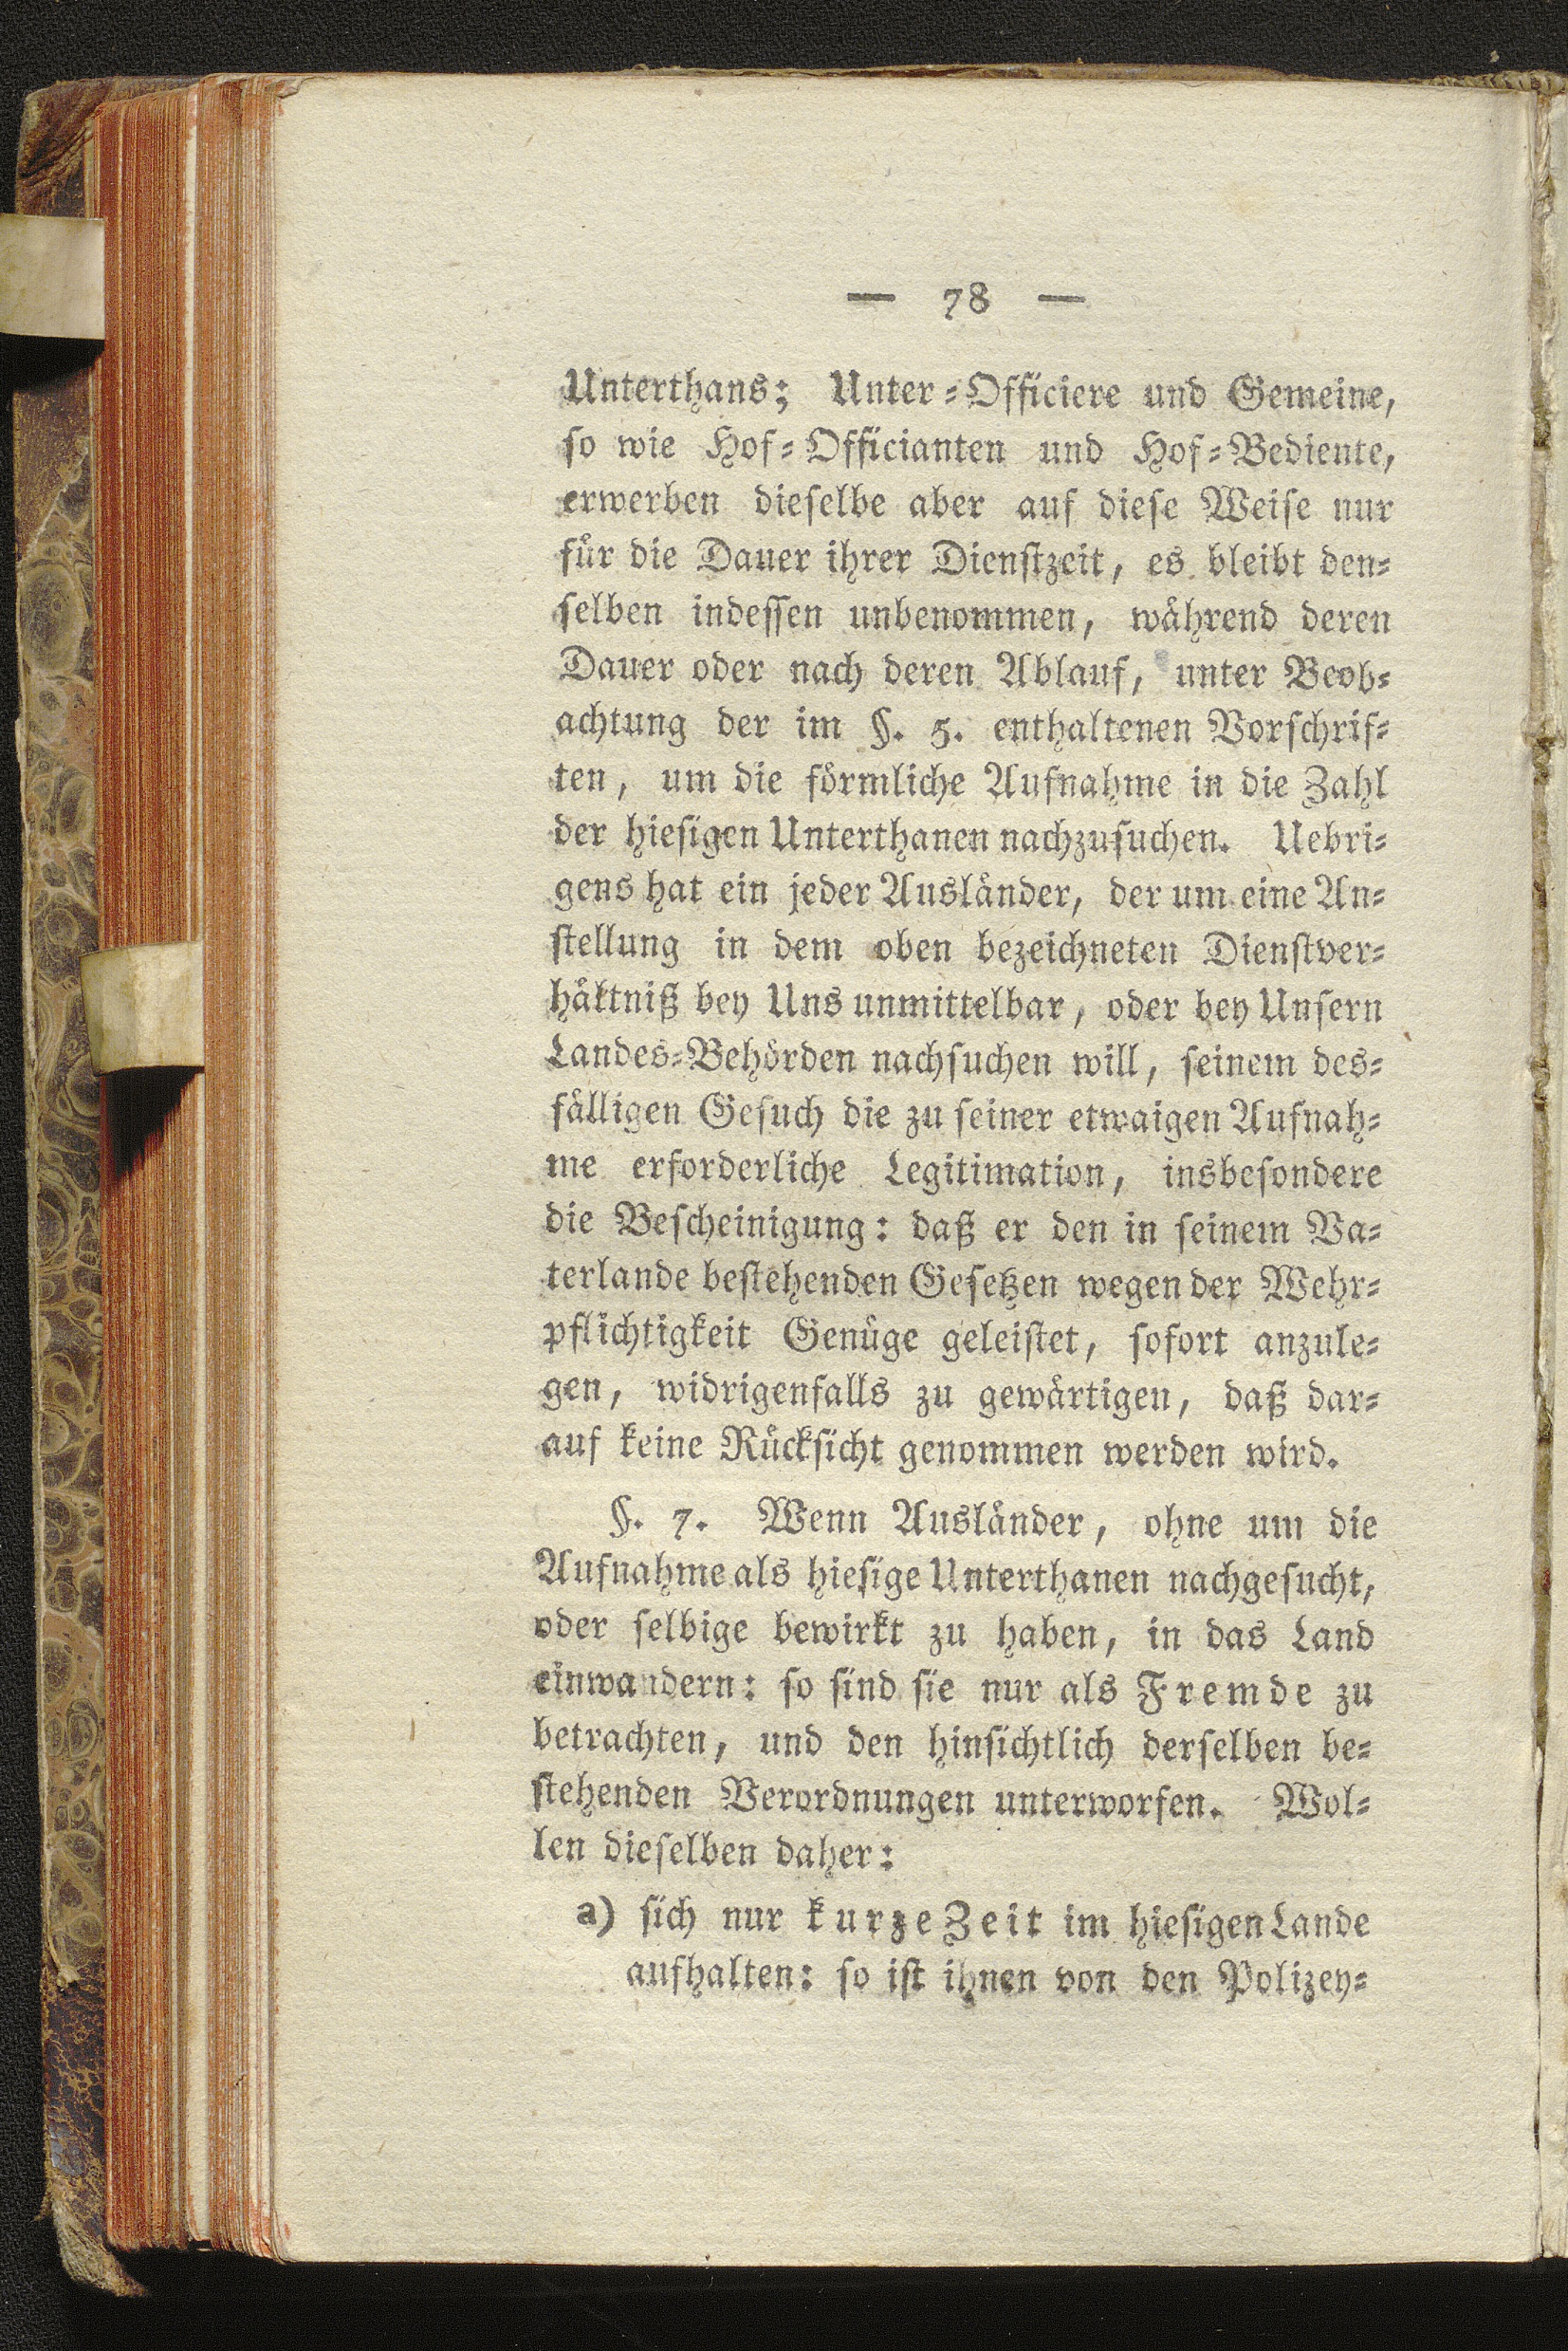 — 78 —
Unterthans; Unter-Officiere und Gemeine,
so wie Hof-Officianten und Hof-Bediente,
erwerben dieselbe aber auf diese Weise nur
für die Dauer ihrer Dienstzeit, es bleibt den-
selben indessen unbenommen, während deren
Dauer oder nach deren Ablauf, unter Beob-
achtung der im §. 5. enthaltenen Vorschrif-
ten, um die förmliche Aufnahme in die Zahl
der hiesigen Unterthanen nachzusuchen. Uebri-
gens hat ein jeder Ausländer, der um eine An-
stellung in dem oben bezeichneten Dienstver-
hältniß bey Uns unmittelbar, oder bey Unsern
Landes-Behörden nachsuchen will, seinem des-
fälligen Gesuch die zu seiner etwaigen Aufnah-
me erforderliche Legitimation, insbesondere
die Bescheinigung: daß er den in seinem Va-
terlande bestehenden Gesetzen wegen der Wehr-
pflichtigkeit Genüge geleistet, sofort anzule-
gen, widrigenfalls zu gewärtigen, daß dar-
auf keine Rücksicht genommen werden wird.
§. 7. Wenn Ausländer, ohne um die
Aufnahme als hiesige Unterthanen nachgesucht,
oder selbige bewirkt zu haben, in das Land
einwandern: so sind sie nur als Fremde zu
betrachten, und den hinsichtlich derselben be-
stehenden Verordnungen unterworfen. Wol-
len dieselben daher:
a) sich nur kurze Zeit im hiesigen Lande
aufhalten: so ist ihnen von den Polizey-